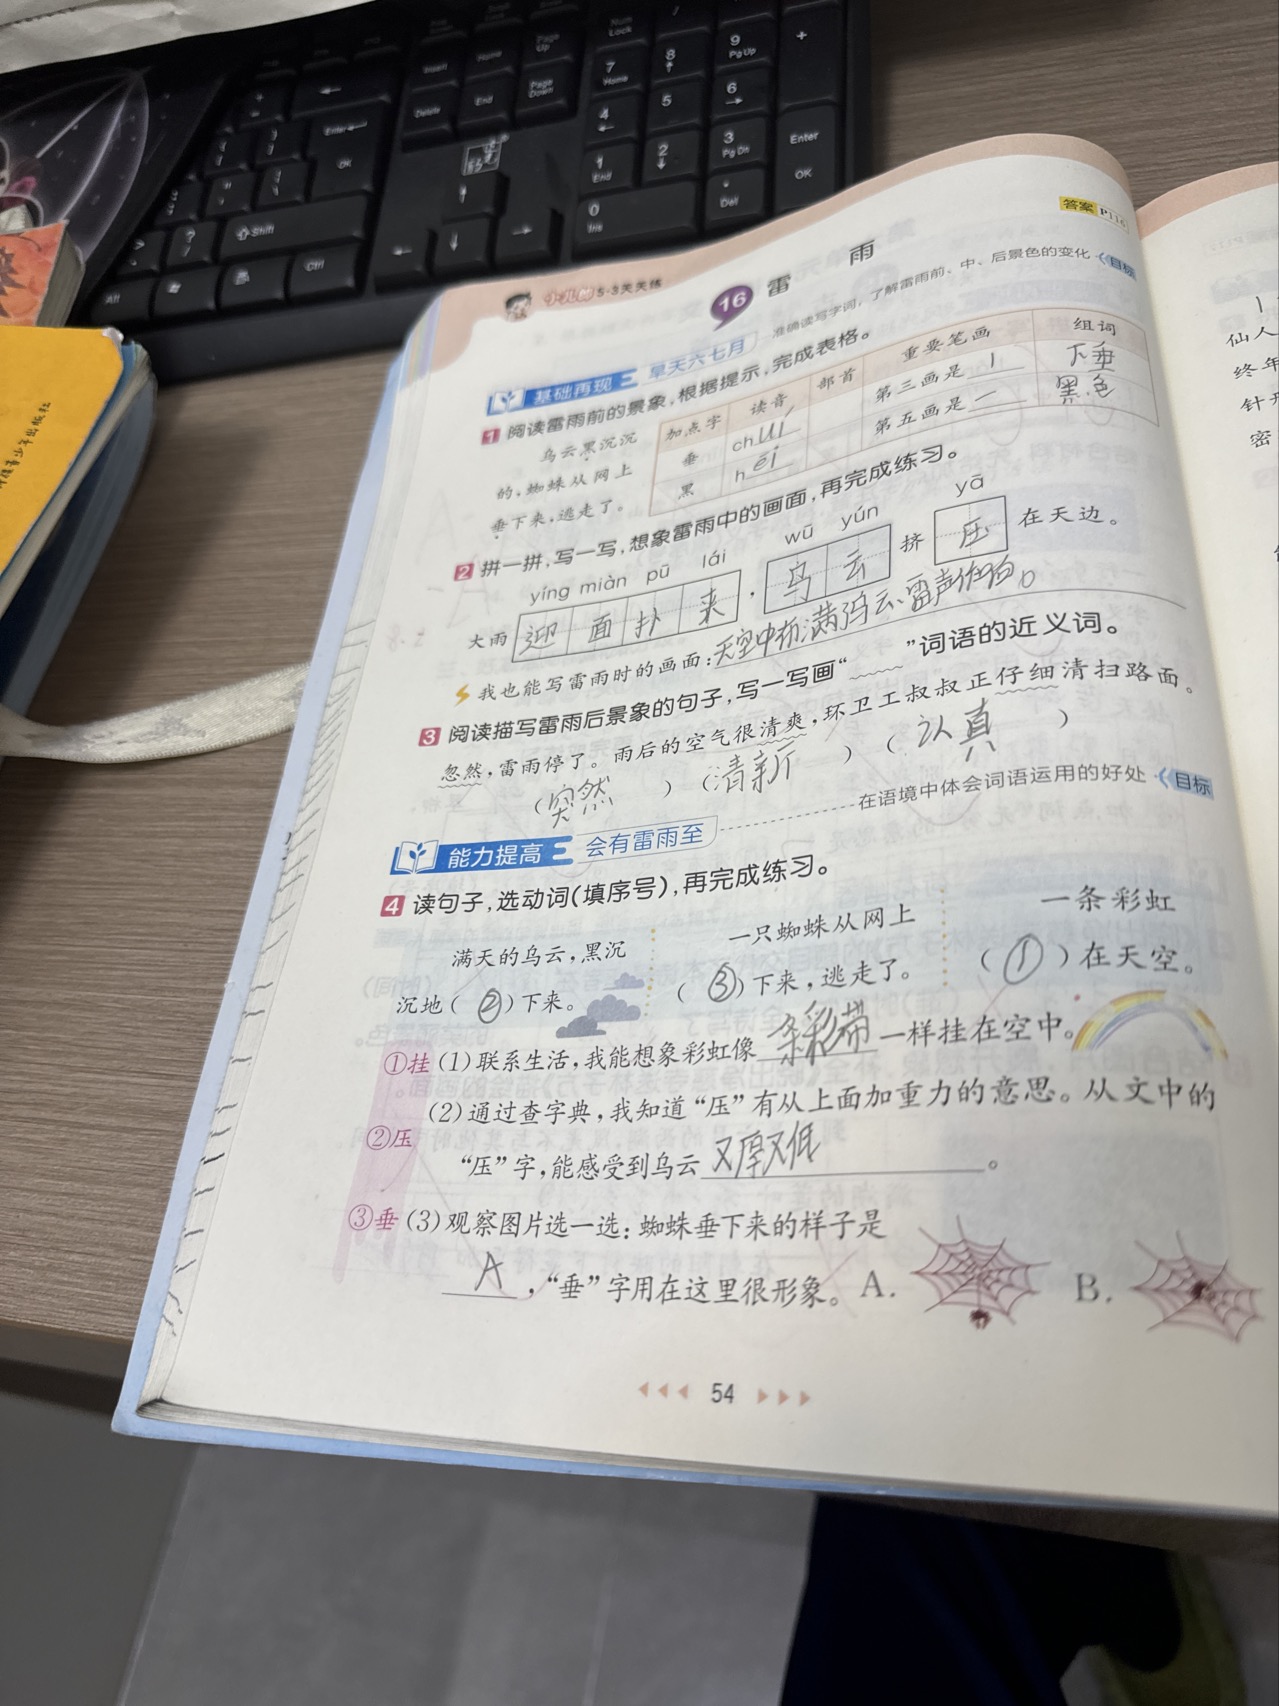 答案 P116
小儿郎 5·3天天练
16 雷 雨
准确读写字词，了解雷雨前、中、后景色的变化 目标
基础再现 旱天六七月
1 阅读雷雨前的景象，根据提示，完成表格。
乌云黑沉沉
的，蜘蛛从网上
垂下来，逃走了。
加点字 读音 部首 重要笔画 组词
垂 chuí 第三画是 丨 下垂
黑 hēi 第五画是 一 黑色
2 拼一拼，写一写，想象雷雨中的画面，再完成练习。
yíng miàn pū lái wū yún yā
大雨 迎面扑来，乌云 挤 压 在天边。
我也能写雷雨时的画面：天空中布满乌云、雷声
3 阅读描写雷雨后景象的句子，写一写画“ ”词语的近义词。
忽然，雷雨停了。雨后的空气很清爽，环卫工叔叔正仔细清扫路面。
（突然 ）（清新 ）（认真 ）
能力提高 会有雷雨至 在语境中体会词语运用的好处 目标
4 读句子，选动词（填序号），再完成练习。
满天的乌云，黑沉
沉地（②）下来。
一只蜘蛛从网上
（③）下来，逃走了。
一条彩虹
（①）在天空。
①挂 （1）联系生活，我能想象彩虹像 条彩带 一样挂在空中。
（2）通过查字典，我知道“压”有从上面加重力的意思。从文中的
②压
“压”字，能感受到乌云 又厚又低 。
③垂 （3）观察图片选一选：蜘蛛垂下来的样子是
A ，“垂”字用在这里很形象。 A. B.
54
仙人
终年
针形
密
Num Lock
Page Up
7 Home
8
9 Pg Up
+
Insert
Home
Delete
End
Page Down
4
5
6
1 End
2
3 Pg Dn
Enter
OK
0 Ins
Del
Enter
OK
Shift
Ctrl
Alt